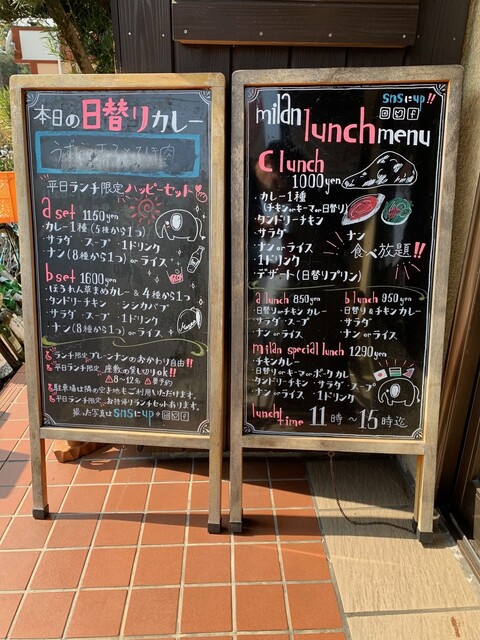 本日の日替りカレー
平日ランチ限定 ハッピーセット
a set 1150yen
・カレー1種 (5種から1つ)
・サラダ・スープ・1ドリンク
・ナン(8種から1つ)orライス
b set 1600yen
・ほうれん草まめカレー & 4種から1つ
・タンドリーチキン ・シシカバブ
・サラダ ・スープ ・1ドリンク
・ナン(8種から1つ)orライス
ランチ限定 プレーンナンのおかわり自由!!
平日ランチ限定 座敷の貸し切りok!!
⚠8~12名 ⚠要予約
駐車場は隣の空き地もご利用いただけます。
平日ランチ限定 お持帰りランチセットあります。
撮った写真はsnsにup
snsにup!!
milan lunch menu
C lunch
1000yen
・カレー1種
(チキンorキーマor日替り)
・タンドリーチキン
・サラダ
・ナンorライス
・1ドリンク
・デザート(日替りプリン)
ナン
食べ放題!!
a lunch 850yen
日替りorチキンカレー
サラダ・スープ
ナンorライス
b lunch 950yen
日替り&チキンカレー
サラダ
ナンorライス
milan special lunch 1290yen
チキンカレー
日替りorキーマorポークカレー
タンドリーチキン・サラダ・スープ
ナンorライス・1ドリンク
lunch time 11時~15時迄